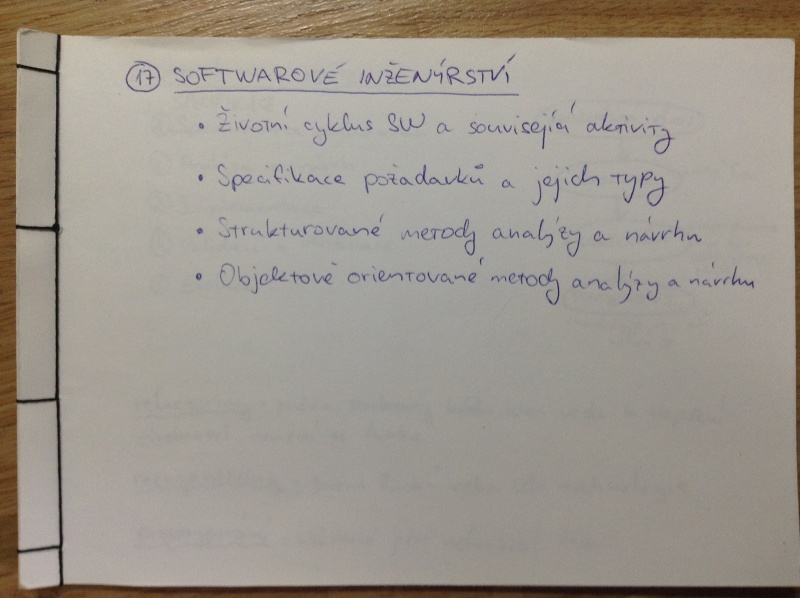 17 SOFTWAROVÉ INŽENÝRSTVÍ
• Životní cyklus SW a související aktivity
• Specifikace požadavků a jejich typy
• Strukturované metody analýzy a návrhu
• Objektově orientované metody analýzy a návrhu